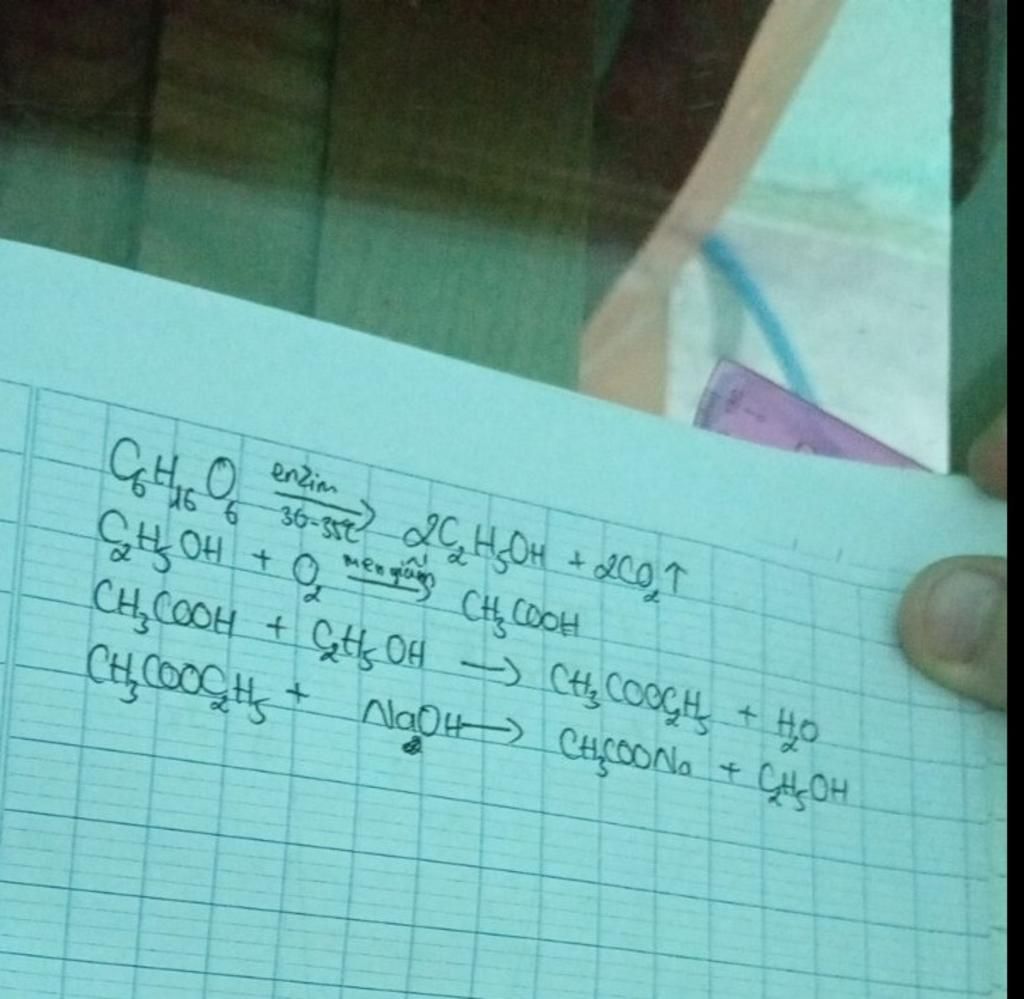 C₆H₁₆O₆ enzim 30-35℃ → 2C₂H₅OH + 2CO₂↑
C₂H₅OH + O₂ men giấm → CH₃COOH
CH₃COOH + C₂H₅OH → CH₃COOC₂H₅ + H₂O
CH₃COOC₂H₅ + NaOH → CH₃COONa + C₂H₅OH